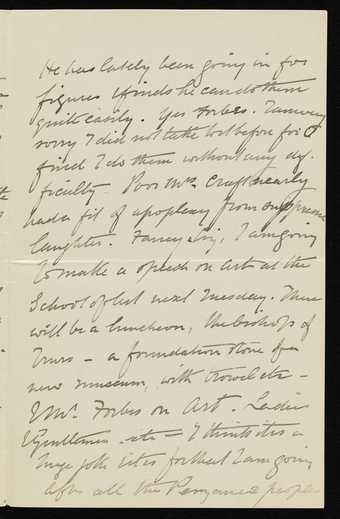 He has lately been going in for
figures & finds he can do them
quite easily. Yes Forbes. I am very
sorry I did not take to it before for I
find I do them without any dif-
ficulty. Poor Mrs. Craft nearly
had a fit of apoplexy from suppressed
laughter. Fancy Sirs, I am going
to make a speech on Art at the
School of Art next Tuesday. There
will be a luncheon, the bishop of
Truro - a foundation stone of a
new museum, with trowel etc -
& Mr. Forbes on Art. Ladies
& Gentlemen - etc = I think it is a
huge joke it is for that I am going
before all the Penzance people